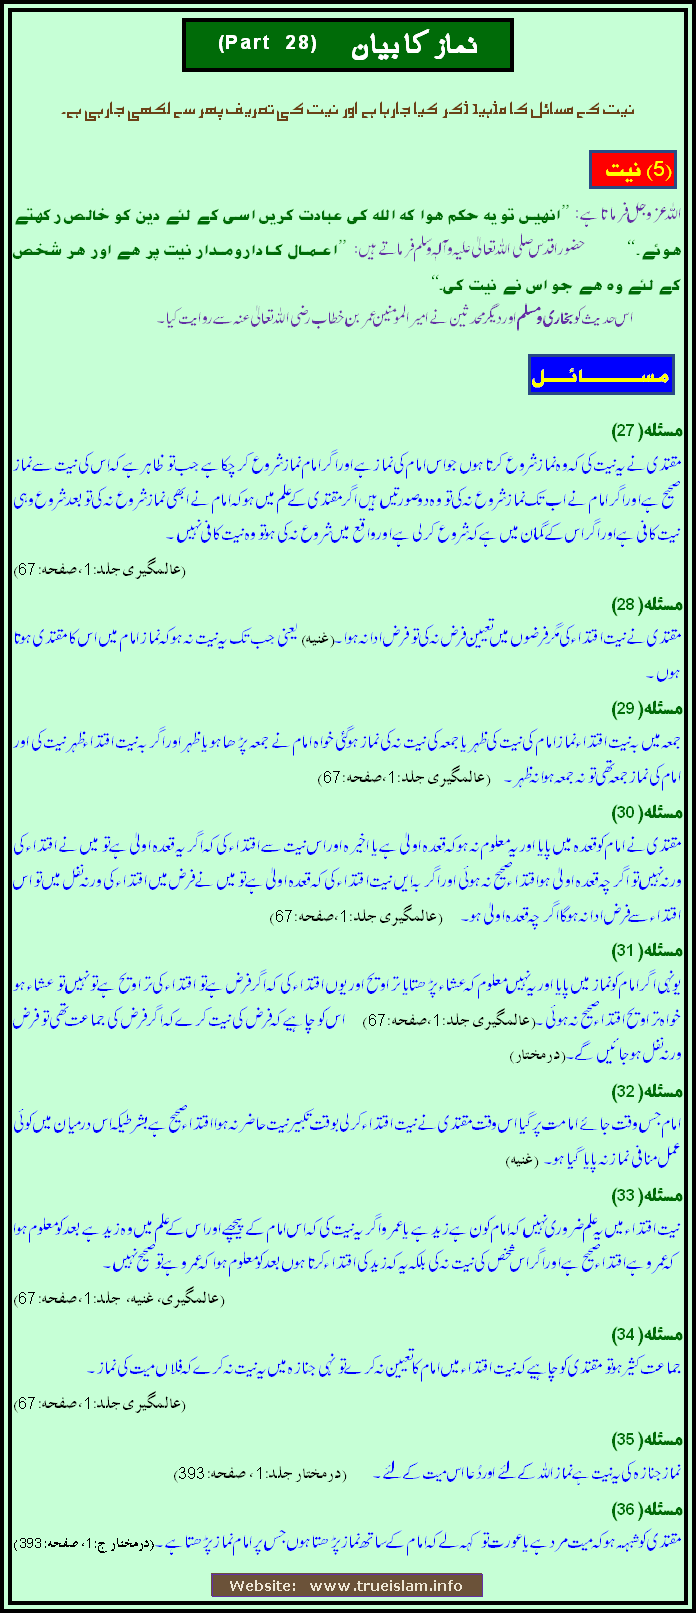 نماز کا بیان (Part 28)
نیت کے مسائل کا مذید ذکر کیا جارہا ہے اور نیت کی تعریف پھر سے لکھی جارہی ہے۔
(5) نیت
اللہ عزوجل فرماتا ہے: ’’انھیں تو یہ حکم ھوا کہ اللہ کی عبادت کریں اسی کے لئے دین کو خالص رکھتے
ھوئے۔‘‘ حضور اقدس صلی اللہ تعالیٰ علیہ وآلہٖ وسلم فرماتے ہیں: ’’اعمال کا دارومدار نیت پر ھے اور ھر شخص
کے لئے وہ ھے جو اس نے نیت کی۔‘‘
اس حدیث کو بخاری ومسلم اور دیگر محدثین نے امیر المومنین عمر بن خطاب رضی اللہ تعالیٰ عنہ سے روایت کیا۔
مسائل
مسئلہ (27)
مقتدی نے یہ نیت کی کہ وہ نماز شروع کرتا ہوں جو اس امام کی نماز ہے اور اگر امام نماز شروع کر چکا ہے جب تو ظاہر ہے کہ اس کی نیت سے نماز
صحیح ہے اور اگر امام نے اب تک نماز شروع نہ کی تو وہ دو صورتیں ہیں اگر مقتدی کے علم میں ہو کہ امام نے ابھی نماز شروع نہ کی تو بعد شروع وہی
نیت کافی ہے اور اگر اس کے گمان میں ہے کہ شروع کر لی ہے اور واقع میں شروع نہ کی ہو تو وہ نیت کافی نہیں۔
(عالمگیری جلد:1،صفحہ:67)
مسئلہ (28)
مقتدی نے نیت اقتداء کی مگر فرضوں میں تعیین فرض نہ کی تو فرض ادا نہ ہوا۔ (غنیہ) یعنی جب تک یہ نیت نہ ہو کہ نماز امام میں اس کا مقتدی ہوتا
ہوں۔
مسئلہ (29)
جمعہ میں بہ نیت اقتداء نماز امام کی نیت کی ظہر یا جمعہ کی نیت نہ کی نماز ہوگئی خواہ امام نے جمعہ پڑھا ہو یا ظہر اور اگر بہ نیت اقتداء ظہر نیت کی اور
امام کی نماز جمعہ تھی تو نہ جمعہ ہوا نہ ظہر۔ (عالمگیری جلد:1،صفحہ:67)
مسئلہ (30)
مقتدی نے امام کو قعدہ میں پایا اور یہ معلوم نہ ہو کہ قعدہ اولیٰ ہے یا اخیرہ اور اس نیت سے اقتداء کی کہ اگر یہ قعدہ اولیٰ ہے تو میں نے اقتداء کی
ورنہ نہیں تو اگر چہ قعدہ اولیٰ ہو اقتداء صحیح نہ ہوئی اور اگر بہ ایں نیت اقتداء کی کہ قعدہ اولیٰ ہے تو میں نے فرض میں اقتداء کی ورنہ نفل میں تو اس
اقتداء سے فرض ادا نہ ہوگا اگر چہ قعدہ اولیٰ ہو۔ (عالمگیری جلد:1،صفحہ:67)
مسئلہ (31)
یونہی اگر امام کو نماز میں پایا اور یہ نہیں معلوم کہ عشاء پڑھتا یا تراویح اور یوں اقتداء کی کہ اگر فرض ہے تو اقتداء کی تراویح ہے تو نہیں تو عشاء ہو
خواہ تراویح اقتداء صحیح نہ ہوئی۔ (عالمگیری جلد:1،صفحہ:67) اس کو چاہیے کہ فرض کی نیت کرے کہ اگر فرض کی جماعت تھی تو فرض
ورنہ نفل ہو جائیں گے۔ (درمختار)
مسئلہ (32)
امام جس وقت جائے امامت پر گیا اس وقت مقتدی نے نیت اقتداء کر لی بوقت تکبیر نیت حاضر نہ ہو اقتداء صحیح ہے بشرطیکہ اس درمیان میں کوئی
عمل منافی نماز نہ پایا گیا ہو۔ (غنیہ)
مسئلہ (33)
نیت اقتداء میں یہ علم ضروری نہیں کہ امام کون ہے زید ہے یا عمرو اگر یہ نیت کی کہ اس امام کے پیچھے اور اس کے علم میں وہ زید ہے بعد کو معلوم ہوا
کہ عمرو ہے اقتداء صحیح ہے اور اگر اس شخص کی نیت نہ کی بلکہ یہ کہ زید کی اقتداء کرتا ہوں بعد کو معلوم ہوا کہ عمرو ہے تو صحیح نہیں۔
(عالمگیری، غنیہ، جلد:1،صفحہ:67)
مسئلہ (34)
جماعت کثیر ہو تو مقتدی کو چاہیے کہ نیت اقتداء میں امام کا تعیین نہ کرے تو نہی جنازہ میں یہ نیت نہ کرے کہ فلاں میت کی نماز۔
(عالمگیری جلد:1،صفحہ:67)
مسئلہ (35)
نماز جنازہ کی یہ نیت ہے نماز اللہ کے لئے اور دُعا اس میت کے لئے۔ (درمختار جلد:1، صفحہ:393)
مسئلہ (36)
مقتدی کو شبہہ ہو کہ میت مرد ہے یا عورت تو کہہ لے کہ امام کے ساتھ نماز پڑھتا ہوں جس پر امام نماز پڑھتا ہے۔ (درمختار ج:1، صفحہ:393)
Website: www.trueislam.info